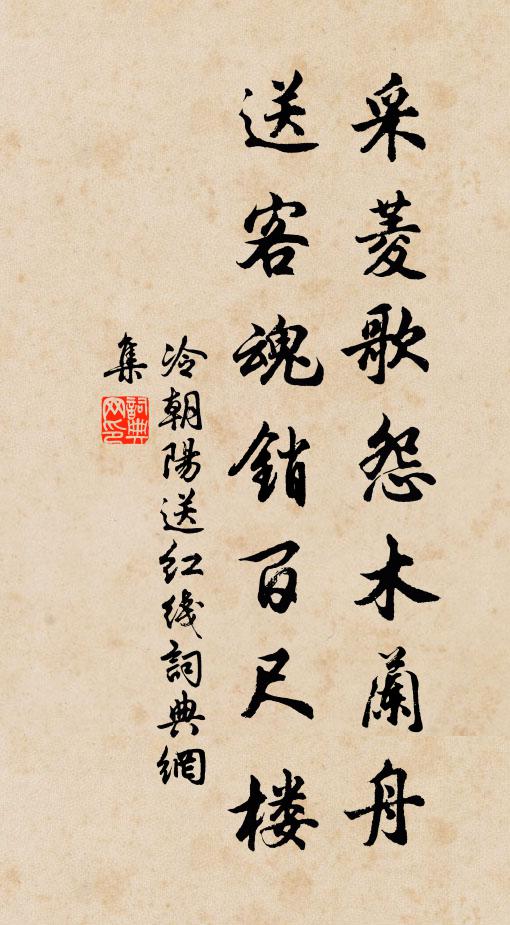 采菱歌怨木蘭舟
送客魂銷百尺楼
冷朝陽送红线詞典網
集
詞典
网印